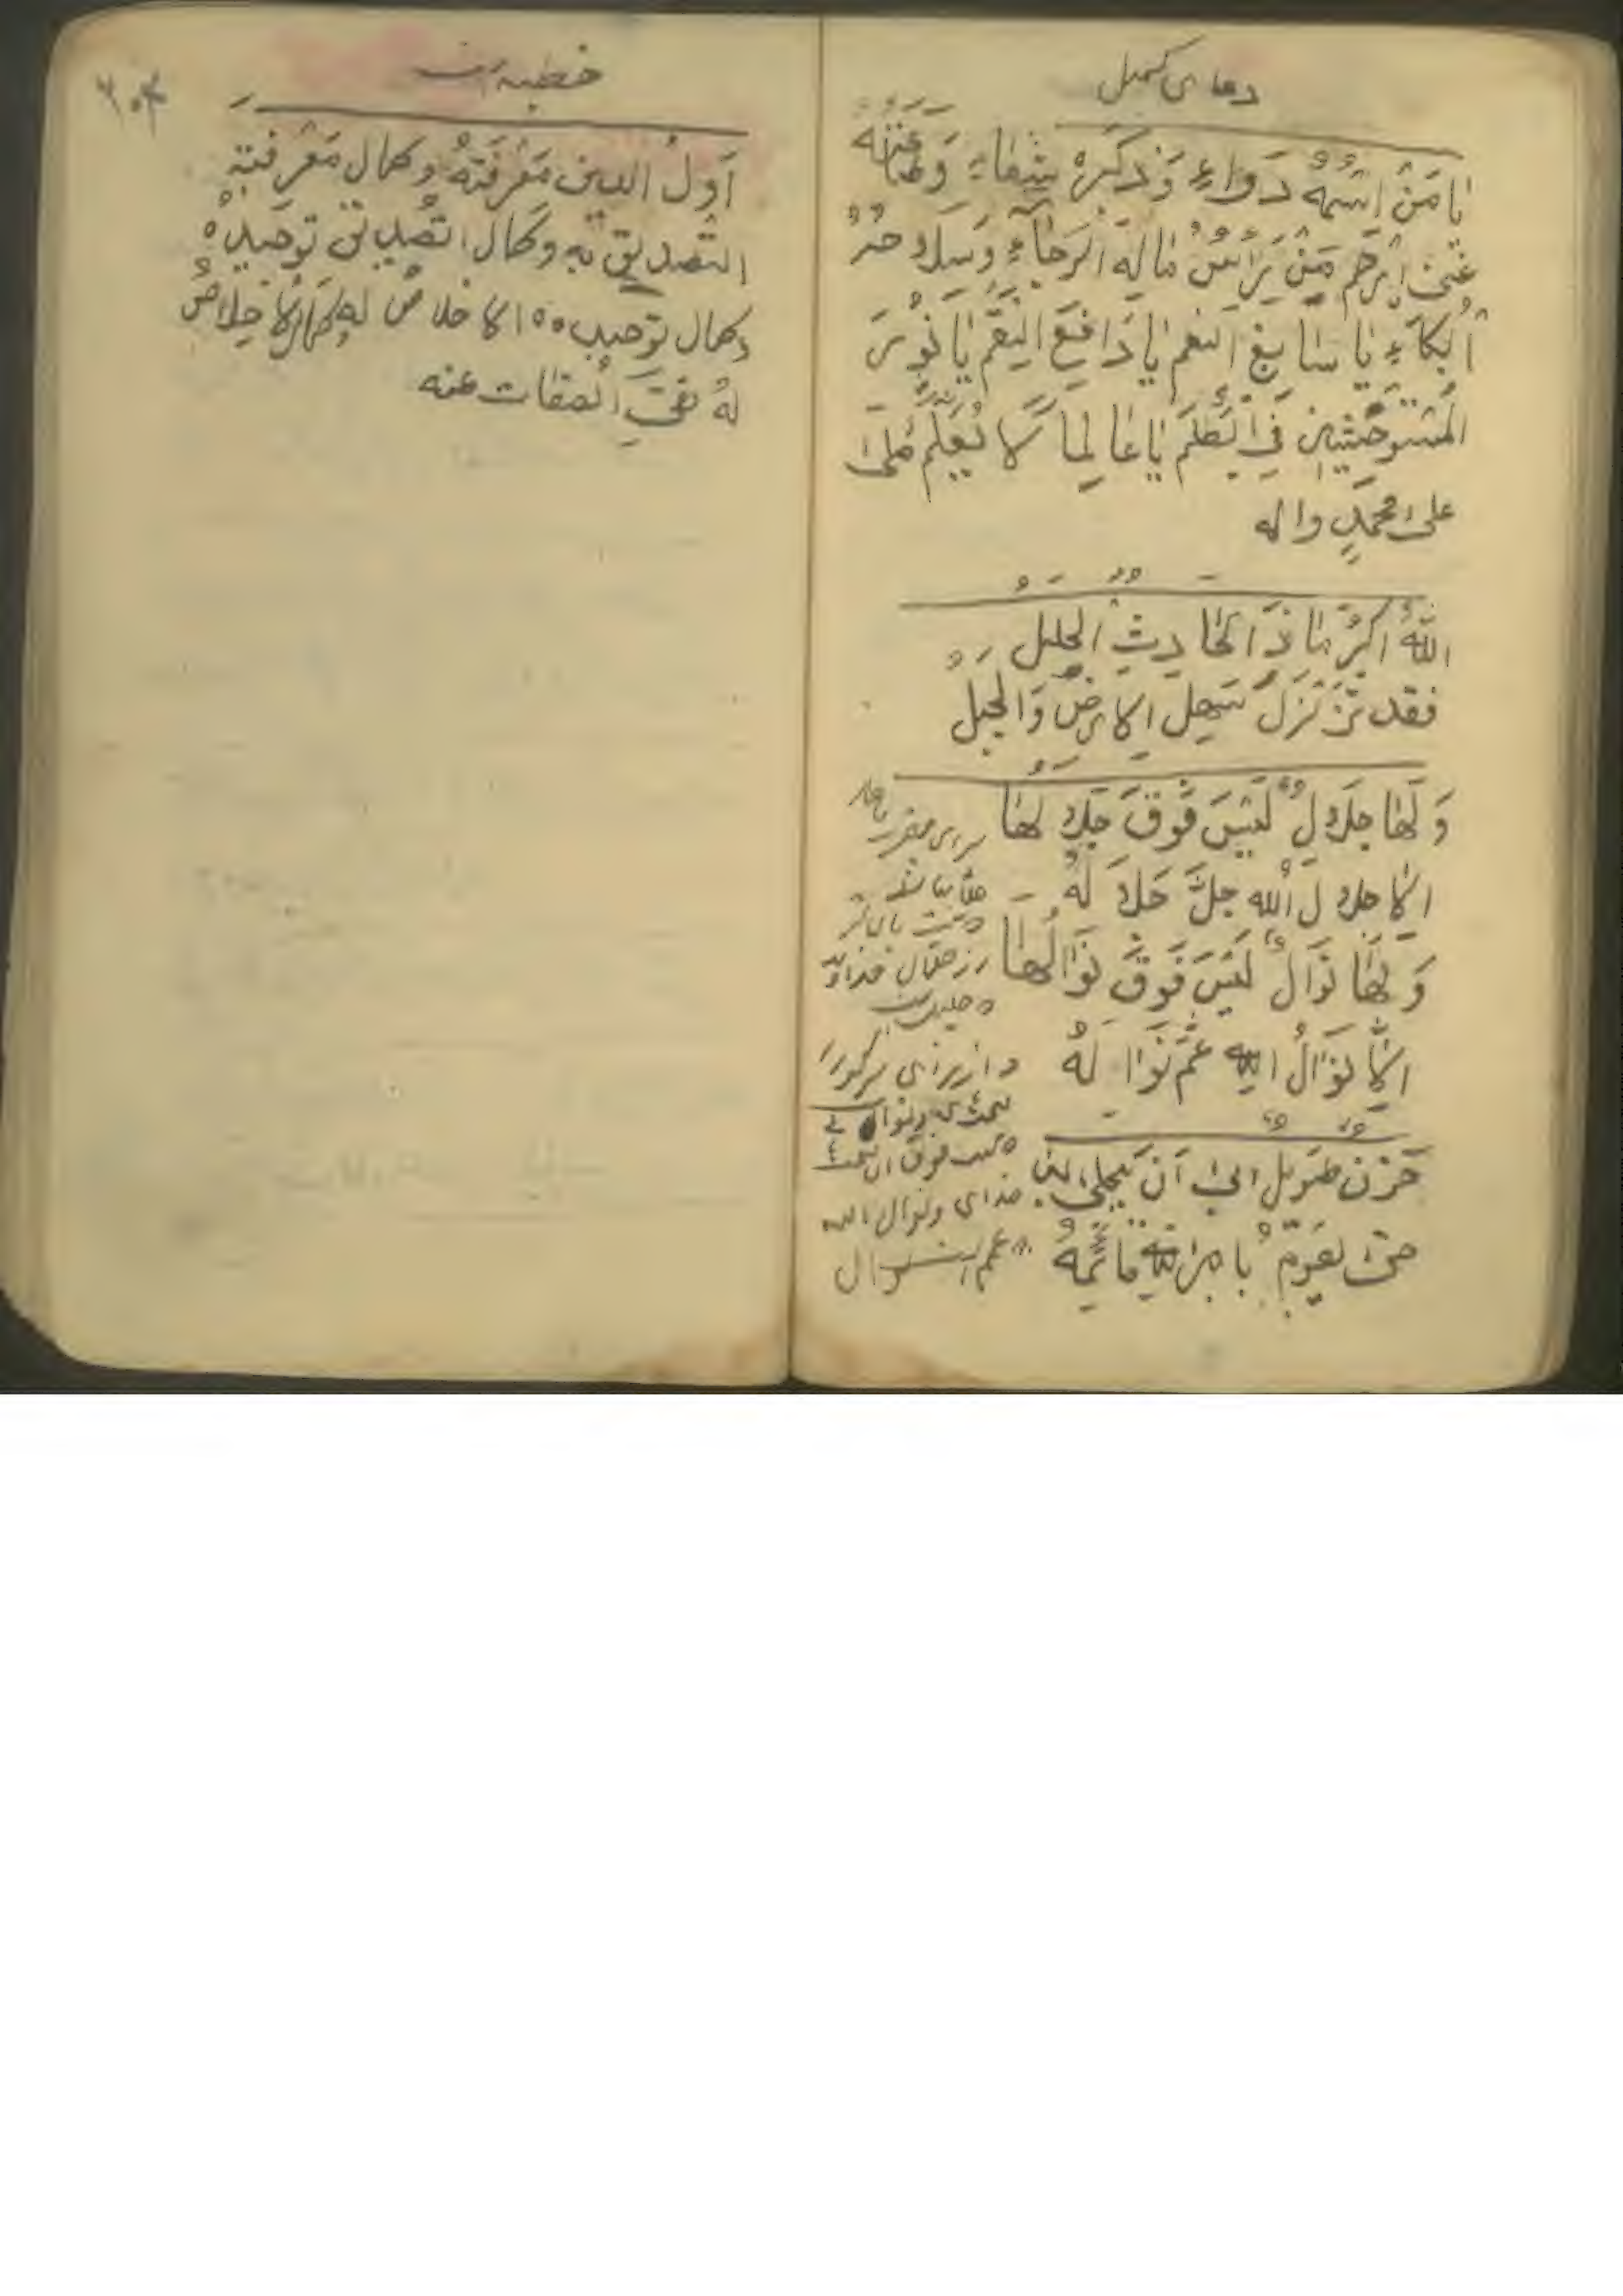 دعای کمیل
یا مَنْ اِسْمُهُ دَواءٌ وَ ذِکْرُهُ شِفاءٌ وَ طاعَتُهُ
غنیً اِرْحَم مَنْ رَأسُ مالِهِ الرَّجاءُ وَ سِلاحُهُ
اَلْبُکاءُ یا سابِغَ النِّعَمِ یا دافِعَ النِّقَمِ یا نُورَ
المُسْتَوحِشینَ فِی الظُّلَمِ یا عالِماً لا یُعَلَّمُ صَلِّ
علی محمدٍ و اله
اللهُ اکبرُ ماذَا الحادِثِ الجلیل
فقد تَزَلْزَلَ سَهْلُ الارضِ وَالجَبَل
وَ لَها جلالٌ لَیْسَ فَوْقَ جَلالِها
اِلّا جلالُ اللهِ جَلَّ جَلالَهُ
وَ لَها نَوَالٌ لَیْسَ فَوْقَ نَوَالِها
اِلّا نَوَالُ اللهِ عَمَّ نَوَالَهُ
حُزْنٌ طَویلٌ ابی اَنْ یَنْجَلی
حتی یَقومَ بامرِ اللهِ قائِمُهُ
برای
از جلال خدای
فوق ان نعمت
خدای و نوال الله
عم النوال
۶۰۴
خطبه
اَوّلُ الدین مَعْرِفَتُهُ وَ کمال مَعْرِفَتِهِ
التصدیق بِهِ وَ کمال التصدیق توحیدُهُ
و کمال توحیده الاخلاص له و کمال الاخلاصِ
لَهُ نَفیُ الصفات عنه